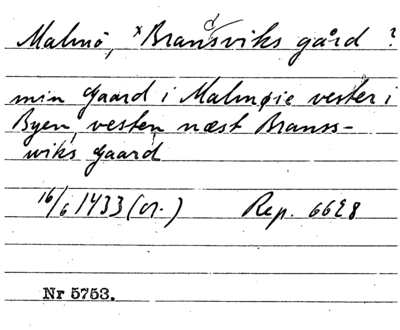 Malmö, ˣBrandsviks gård ?
min Gaard i Malmøie vester i
Byen, vesten næst Branss-
wiks Gaard
16/6 1433 (or.) Rep. 6628
Nr 5753.